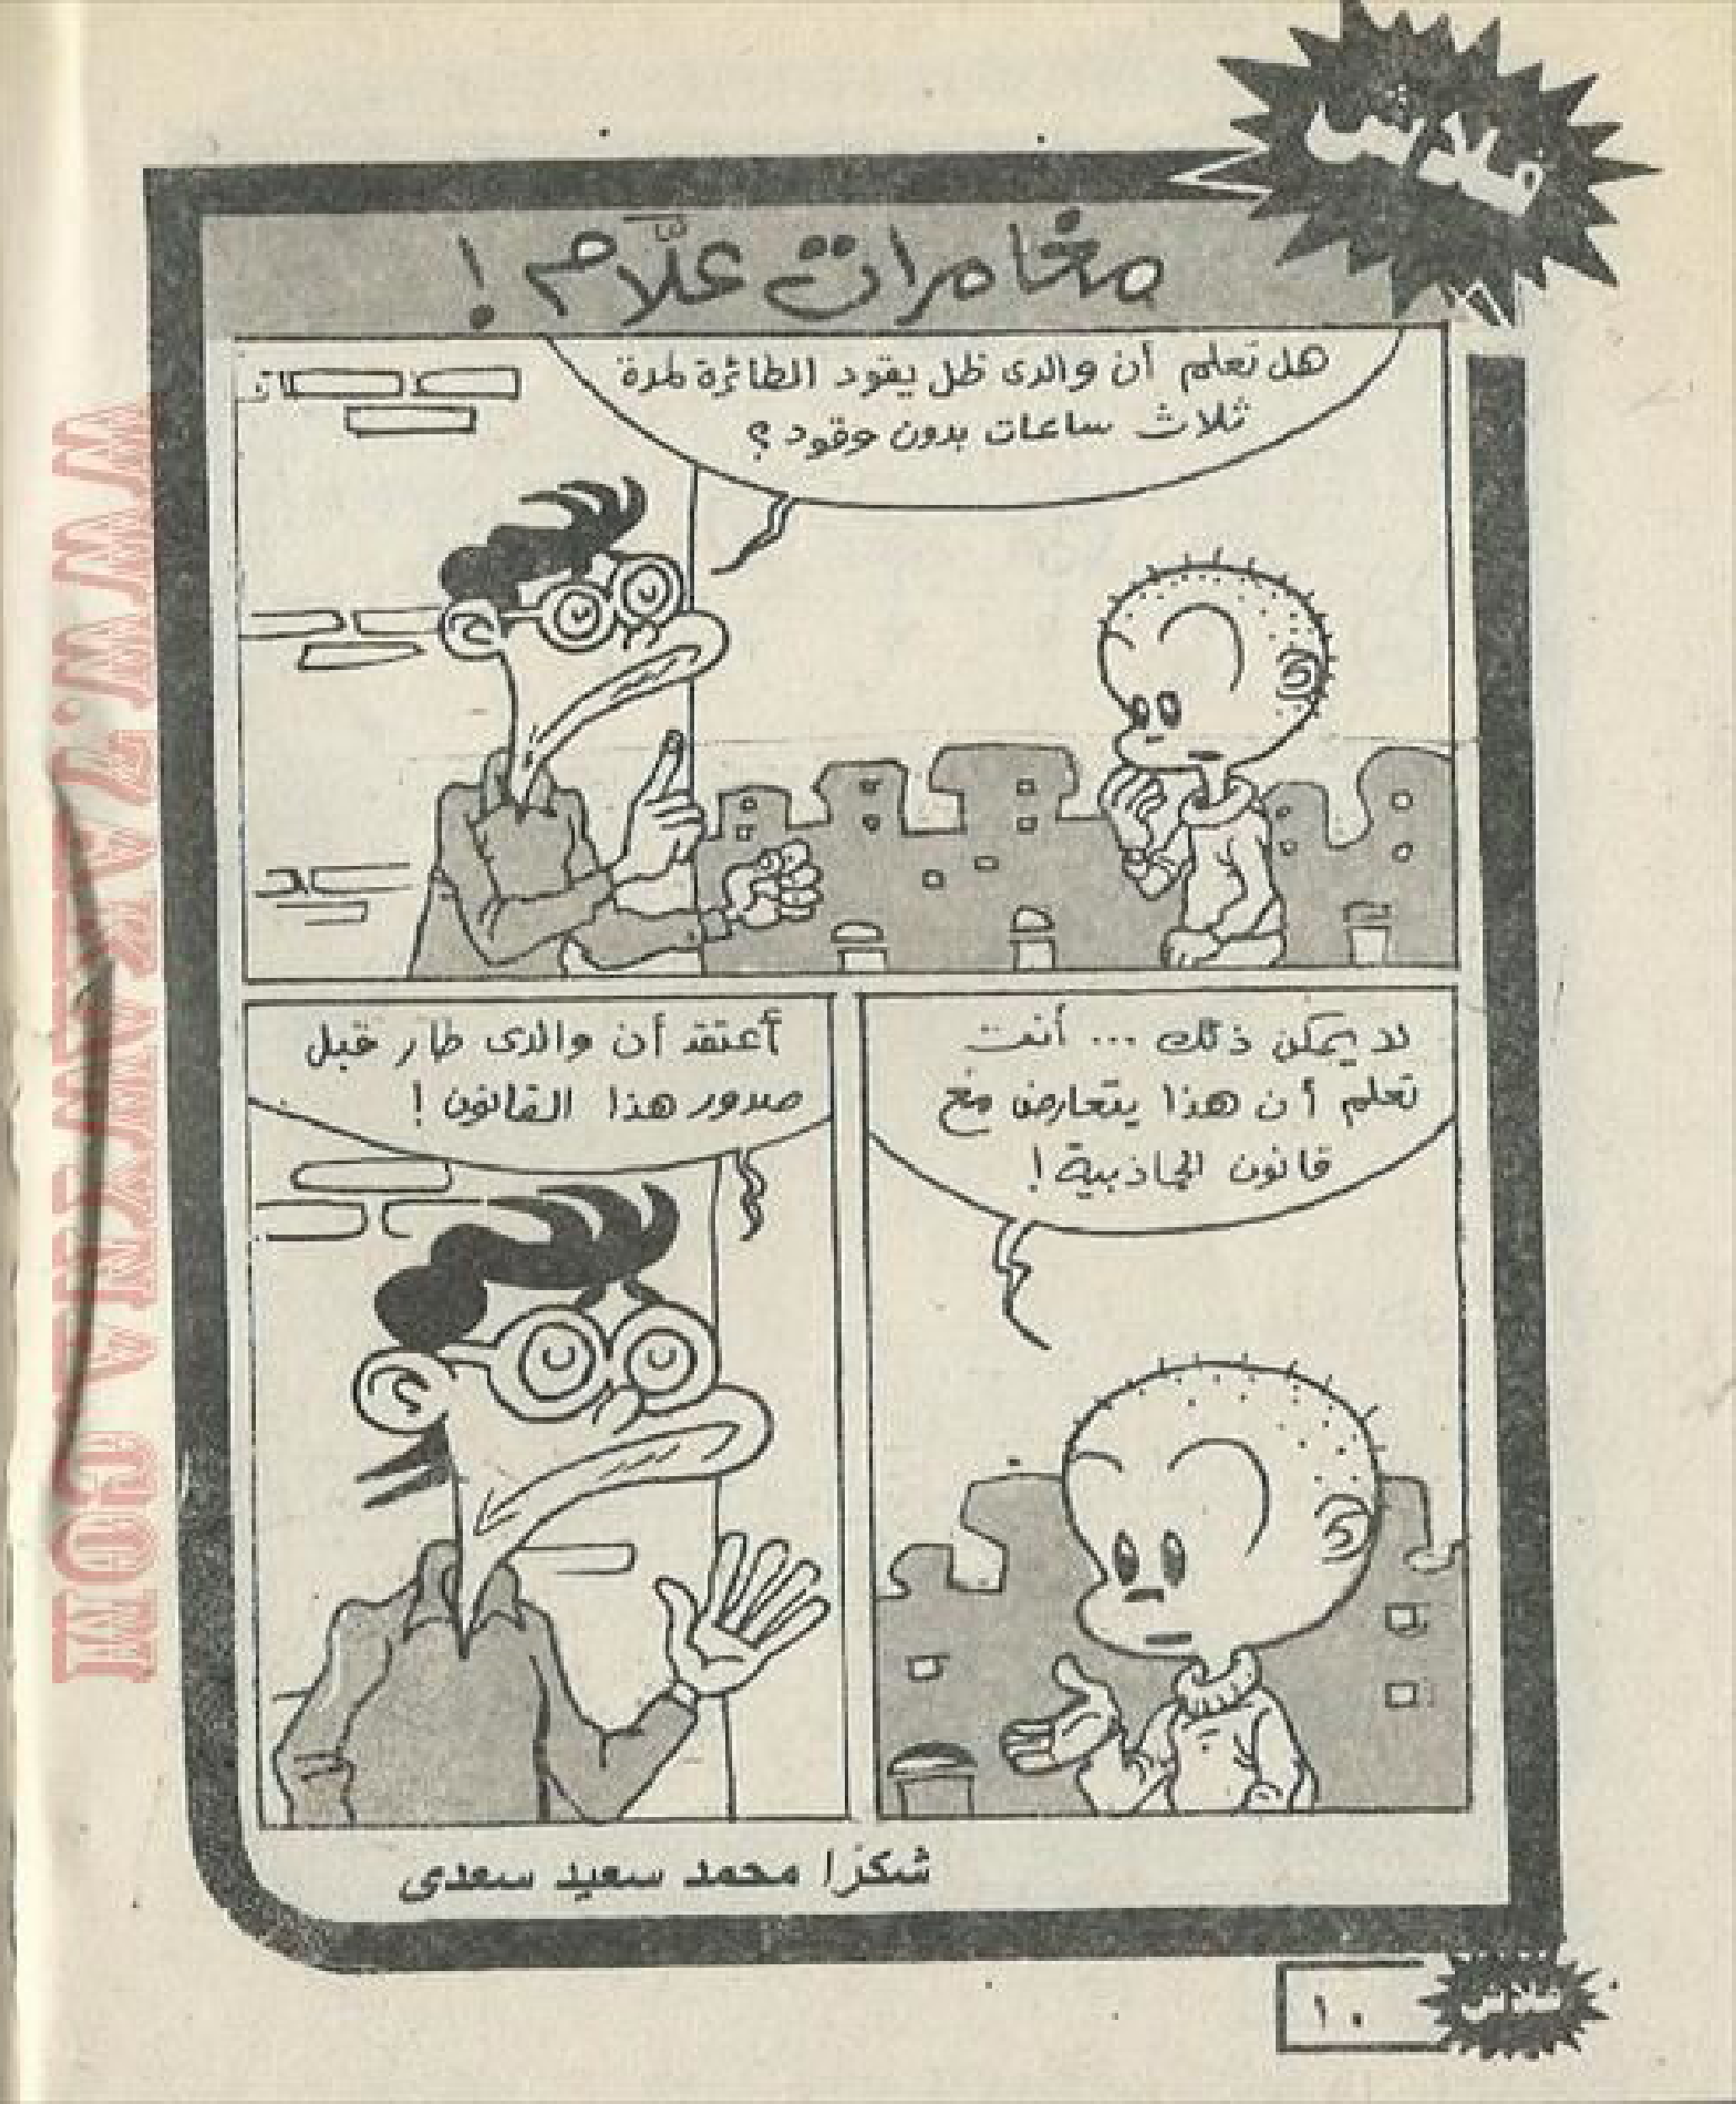 فلاش
مغامرات علّام !
هل تعلم أن والدى ظل يقود الطائرة لمدة
ثلاث ساعات بدون وقود ؟
لا يمكن ذلك ... أنت
تعلم أن هذا يتعارض مع
قانون الجاذبية !
أعتقد أن والدى طار قبل
صدور هذا القانون !
شكرًا محمد سعيد سعدى
١٠
فلاش